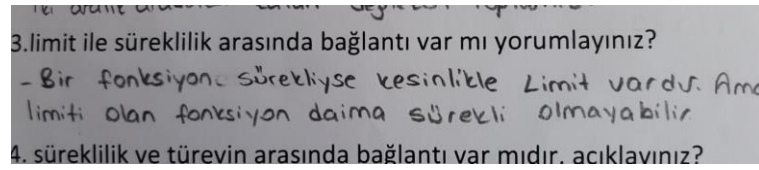 3.limit ile süreklilik arasında bağlantı var mı yorumlayınız?
- Bir fonksiyon sürekliyse kesinlikle Limit vardır. Ama
limiti olan fonksiyon daima sürekli olmayabilir
4. süreklilik ve türevin arasında bağlantı var mıdır, açıklayınız?